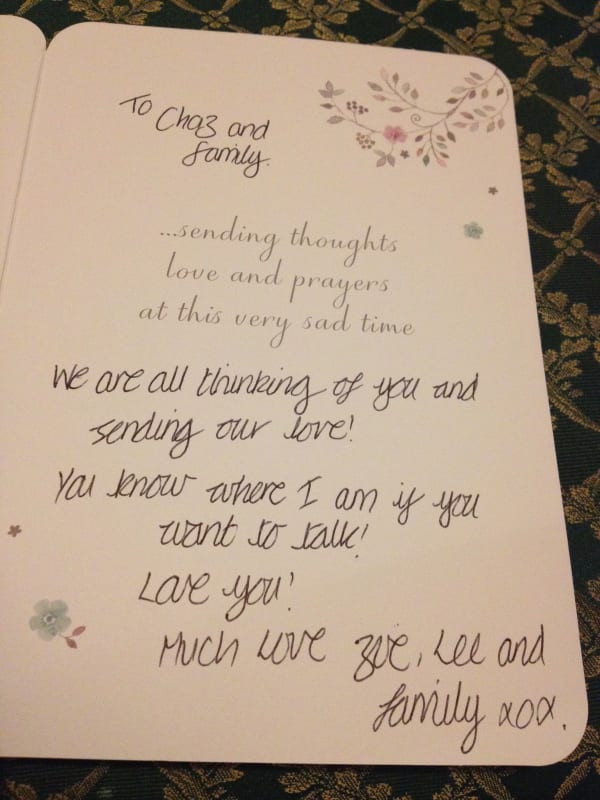 To Chaz and
family.
...sending thoughts
love and prayers
at this very sad time
We are all thinking of you and
sending our love!
You know where I am if you
want to talk!
Love you!
Much Love Zoe, Lee and
family xox.